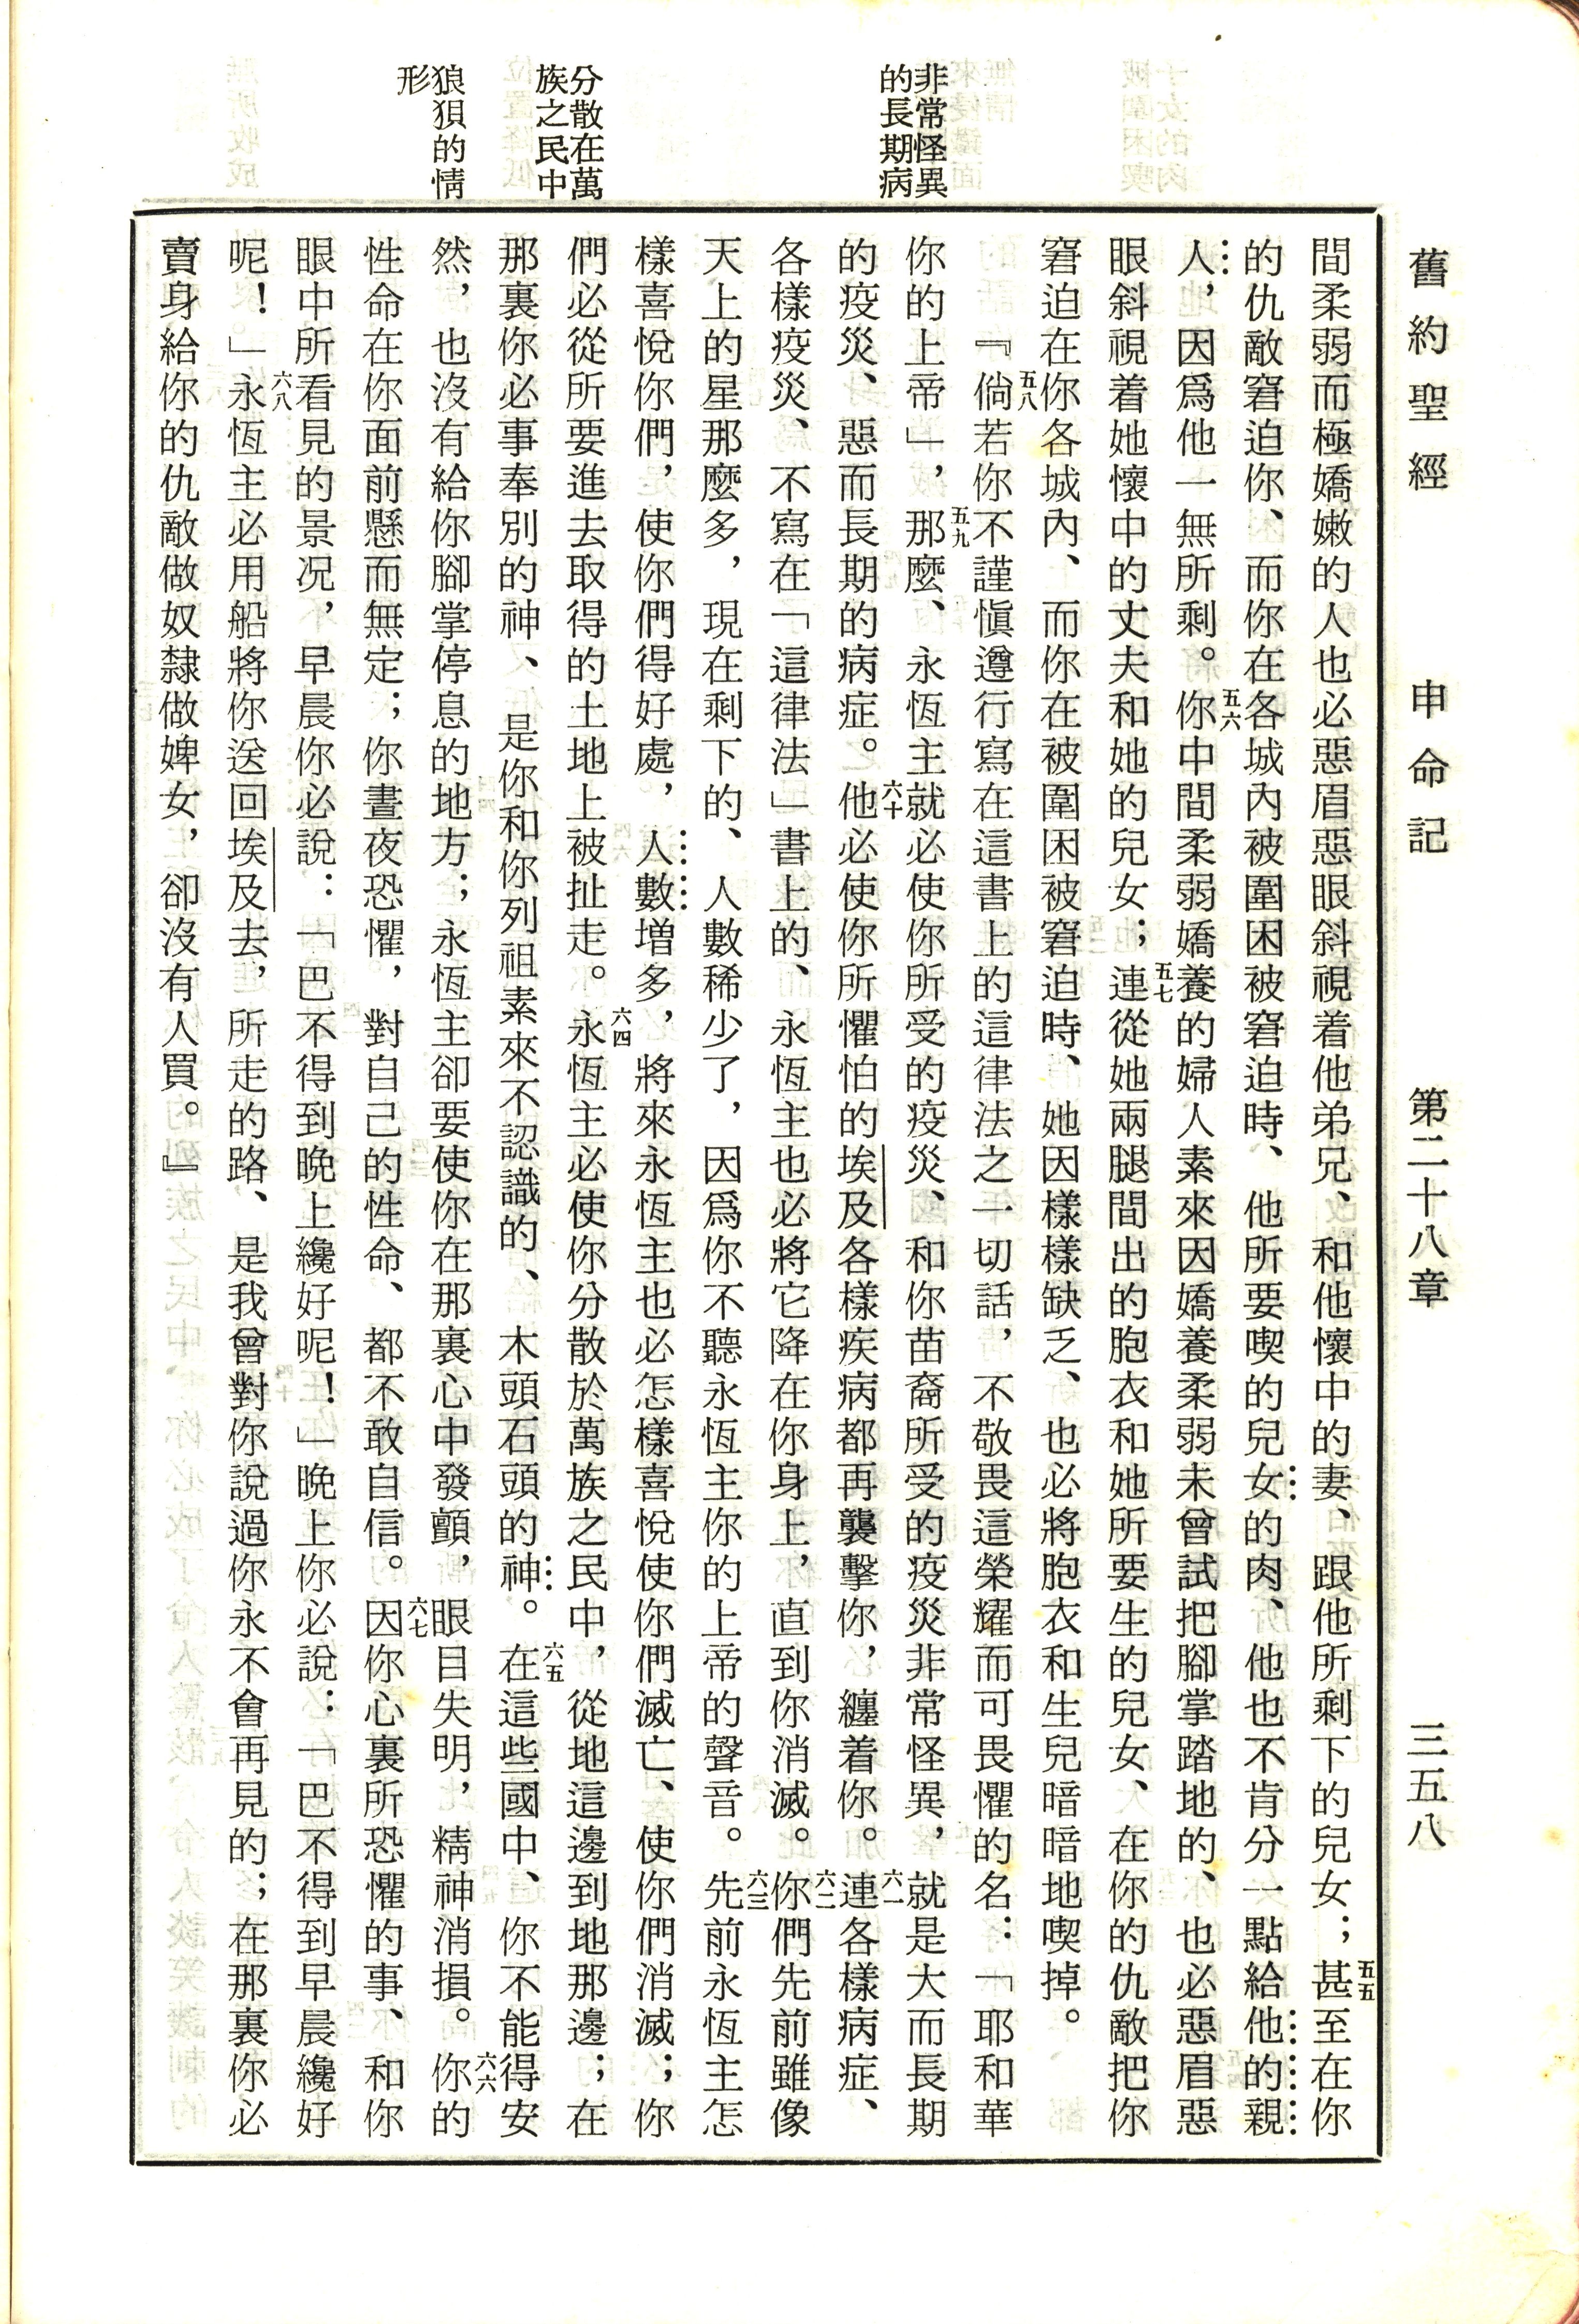 舊約聖經　申命記　第二十八章　三五八
非常怪異
的長期病
分散在萬
族之民中
狼狽的情
形
間柔弱而極嬌嫩的人也必惡眉惡眼斜視着他弟兄、和他懷中的妻、跟他所剩下的兒女；五五甚至在你
的仇敵窘迫你、而你在各城內被圍困被窘迫時、他所要喫的兒女的肉、他也不肯分一點給他的親
人，因爲他一無所剩。五六你中間柔弱嬌養的婦人素來因嬌養柔弱未曾試把腳掌踏地的、也必惡眉惡
眼斜視着她懷中的丈夫和她的兒女；五七連從她兩腿間出的胞衣和她所要生的兒女、在你的仇敵把你
窘迫在你各城內、而你在被圍困被窘迫時、她因樣樣缺乏、也必將胞衣和生兒暗暗地喫掉。
『五八倘若你不謹愼遵行寫在這書上的這律法之一切話，不敬畏這榮耀而可畏懼的名：「耶和華
你的上帝」，五九那麼、永恆主就必使你所受的疫災、和你苗裔所受的疫災非常怪異，就是大而長期
的疫災、惡而長期的病症。六十他必使你所懼怕的埃及各樣疾病都再襲擊你，纏着你。六一連各樣病症、
各樣疫災、不寫在「這律法」書上的、永恆主也必將它降在你身上，直到你消滅。六二你們先前雖像
天上的星那麼多，現在剩下的、人數稀少了，因爲你不聽永恆主你的上帝的聲音。六三先前永恆主怎
樣喜悅你們，使你們得好處，人數增多，將來永恆主也必怎樣喜悅使你們滅亡、使你們消滅；你
們必從所要進去取得的土地上被扯走。六四永恆主必使你分散於萬族之民中，從地這邊到地那邊；在
那裏你必事奉別的神、是你和你列祖素來不認識的、木頭石頭的神。六五在這些國中、你不能得安
然，也沒有給你腳掌停息的地方；永恆主卻要使你在那裏心中發顫，眼目失明，精神消損。六六你的
性命在你面前懸而無定；你晝夜恐懼，對自己的性命、都不敢自信。六七因你心裏所恐懼的事、和你
眼中所看見的景況，早晨你必說：「巴不得到晚上纔好呢！」晚上你必說：「巴不得到早晨纔好
呢！」六八永恆主必用船將你送回埃及去，所走的路、是我曾對你說過你永不會再見的；在那裏你必
賣身給你的仇敵做奴隸做婢女，卻沒有人買。』